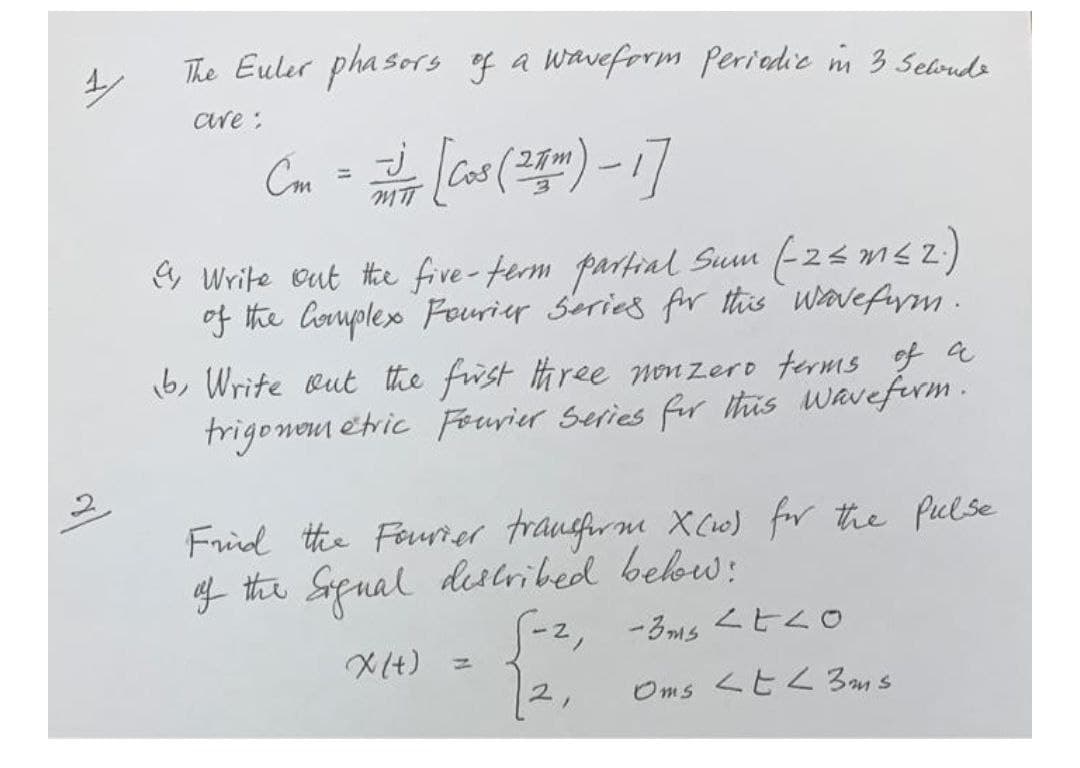 1/ The Euler phasors of a waveform periodic in 3 Seconds
are :
Cm = -j/mπ [Cos(2πm/3) - 1]
a, Write out the five-term partial Sum (-2 ≤ m ≤ 2.)
of the Complex Fourier Series for this waveform.
b, Write out the first three nonzero terms of a
trigonometric Fourier Series for this waveform.
2/ Find the Fourier transform X(w) for the Pulse
of the Signal described below:
x(t) = { -2, -3ms < t < 0
2, 0ms < t < 3ms